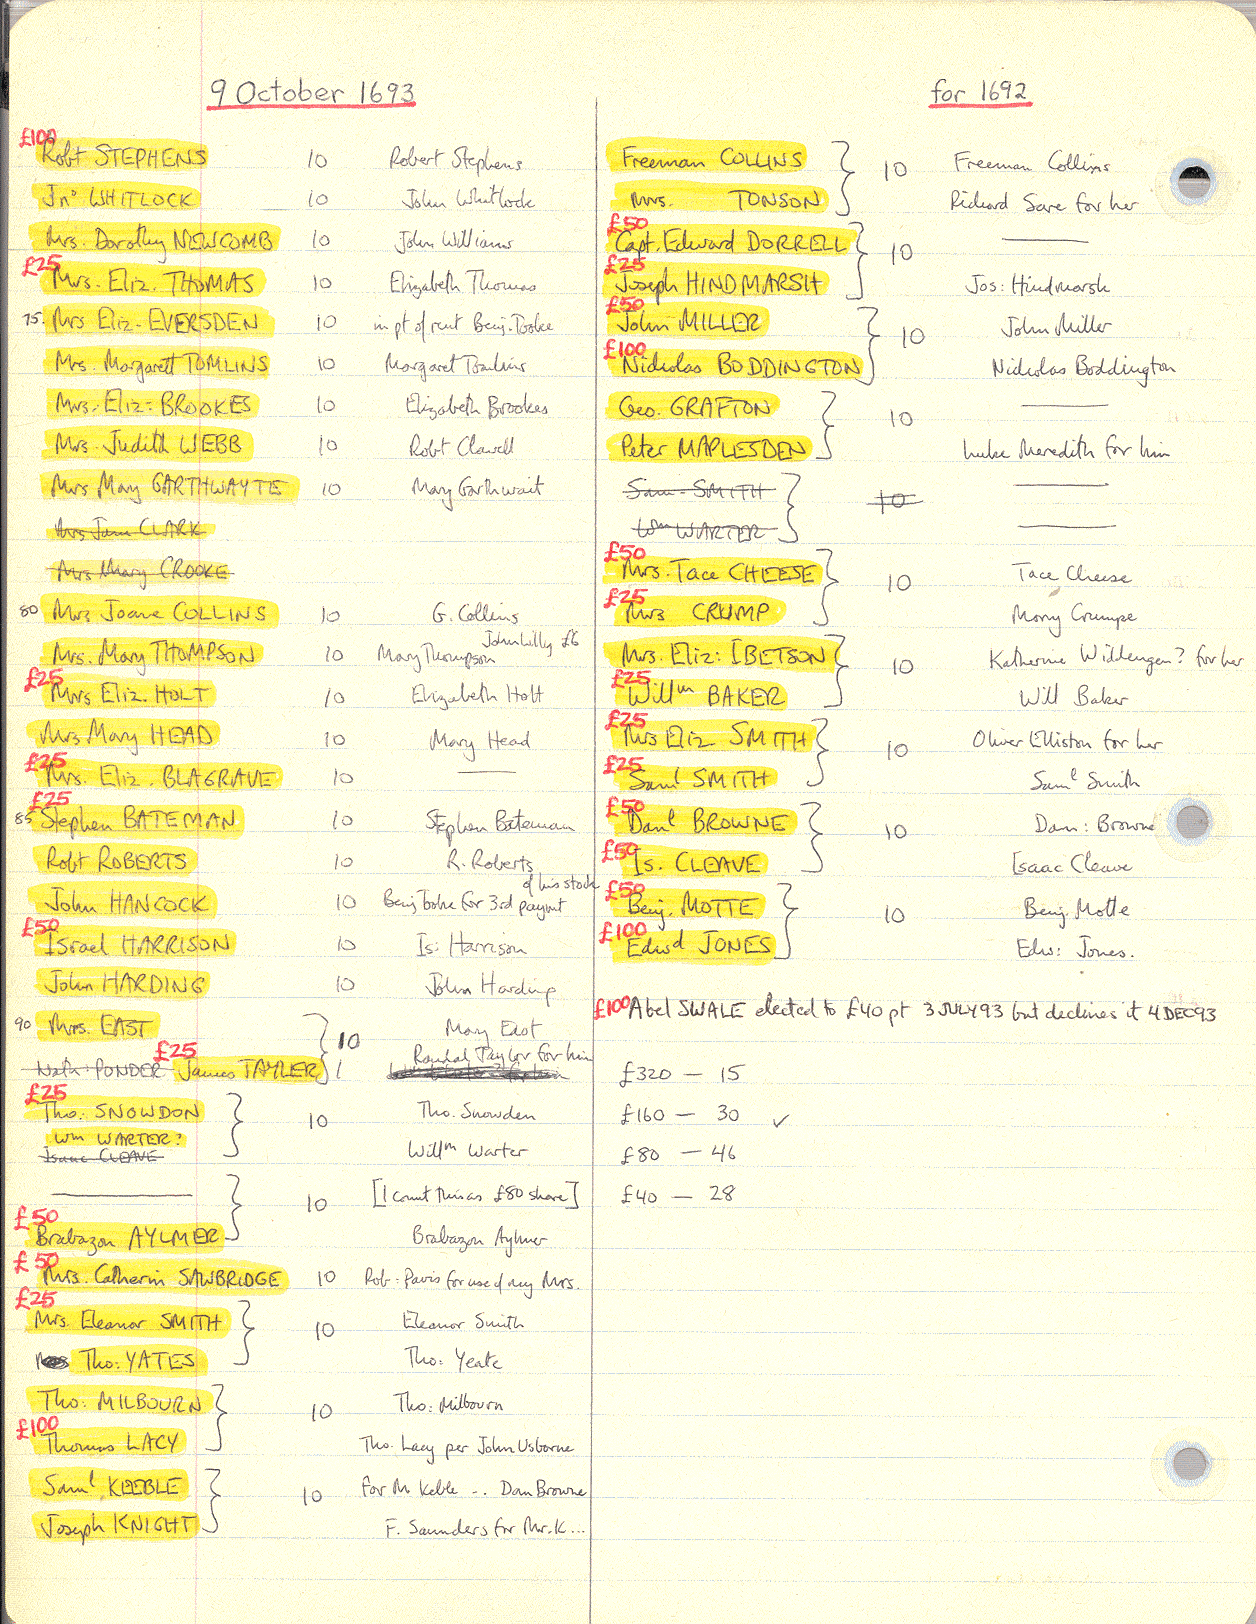 9 October 1693
£100
Robt STEPHENS 10 Robert Stephens
Jno WHITLOCK 10 John Whitlock
Mrs. Dorothy NEWCOMB 10 John Williams
£25
Mrs. Eliz. THOMAS 10 Elizabeth Thomas
75. Mrs Eliz. EVERSDEN 10 in pt of rent Benj. Tooke
Mrs. Margarett TOMLINS 10 Margaret Tomlins
Mrs. Eliz: BROOKES 10 Elizabeth Brookes
Mrs. Judith WEBB 10 Robt Clavell
Mrs Mary GARTHWAYTE 10 Mary Garthwait
Mrs Jane CLARK
Mrs Mary CROOKE
80 Mrs Joane COLLINS 10 G. Collins
John Lilly £6
Mrs. Mary THOMPSON 10 Mary Thompson
£25
Mrs Eliz. HOLT 10 Elizabeth Holt
Mrs Mary HEAD 10 Mary Head
£25
Mrs. Eliz. BLAGRAVE 10 ———
£25
85 Stephen BATEMAN 10 Stephen Bateman
Robt ROBERTS 10 R. Roberts
of his stock
John HANCOCK 10 Benj Tooke for 3rd payout
£50
Israel HARRISON 10 Is: Harrison
John HARDING 10 John Harding
90 Mrs. EAST 10 Mary East
£25 Randal Taylor for him
Nath: PONDER James TAYLER
£25
Tho: SNOWDON 10 Tho. Snowden
Wm WARTER? Willm Warter
Isaac CLEAVE
——— 10 [I count this as £80 share]
£50
Brabazon AYLMER Brabazon Aylmer
£50
Mrs. Catherin SAWBRIDGE 10 Rob: Pavis for use of my Mrs.
£25
Mrs. Eleanor SMITH 10 Eleanor Smith
Tho: YATES Tho: Yeate
Tho: MILBOURN 10 Tho: Milbourn
£100
Thomas LACY Tho. Lacy per John Usborne
Saml KEEBLE 10 for M Keble -.. Dan Browne
Joseph KNIGHT F. Saunders for Mr. K...
for 1692
Freeman COLLINS 10 Freeman Collins
Mrs. TONSON Richard Sare for her
£50
Capt. Edward DORRELL 10 ———
£25
Joseph HINDMARSH Jos: Hindmarsh
£50
John MILLER 10 John Miller
£100
Nicholas BODDINGTON Nicholas Boddington
Geo. GRAFTON 10 ———
Peter MAPLESDEN Luke Meredith for him
Sam. SMITH 10 ———
Wm WARTER ———
£50
Mrs. Tace CHEESE 10 Tace Cheese
£25
Mrs CRUMP Mary Crumpe
Mrs. Eliz: IBETSON 10 Katherine Widdengen? for her
£25
Willm BAKER Will Baker
£25
Mrs Eliz. SMITH 10 Oliver Elliston for her
£25
Saml SMITH Saml Smith
£50
Danl BROWNE 10 Dan: Browne
£50
Is. CLEAVE Isaac Cleave
£50
Benj. MOTTE 10 Benj Motte
£100
Edwd JONES Edw: Jones.
£100 Abel SWALE elected to £40 pt 3 JULY 93 but declines it 4 DEC 93
£320 — 15
£160 — 30 ✓
£80 — 46
£40 — 28